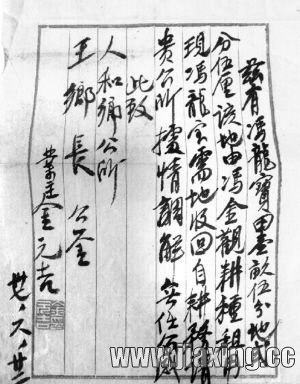 茲有馮龍寶田壹畝伍分地
分伍厘該地由馮全觀耕種租
現馮龍寶需地收回自耕務請
貴公所據情調解無任
此致
人和鄉公所
王鄉長公鑒
業主金元吉
卅八.六.廿
www.jiaxing.cc